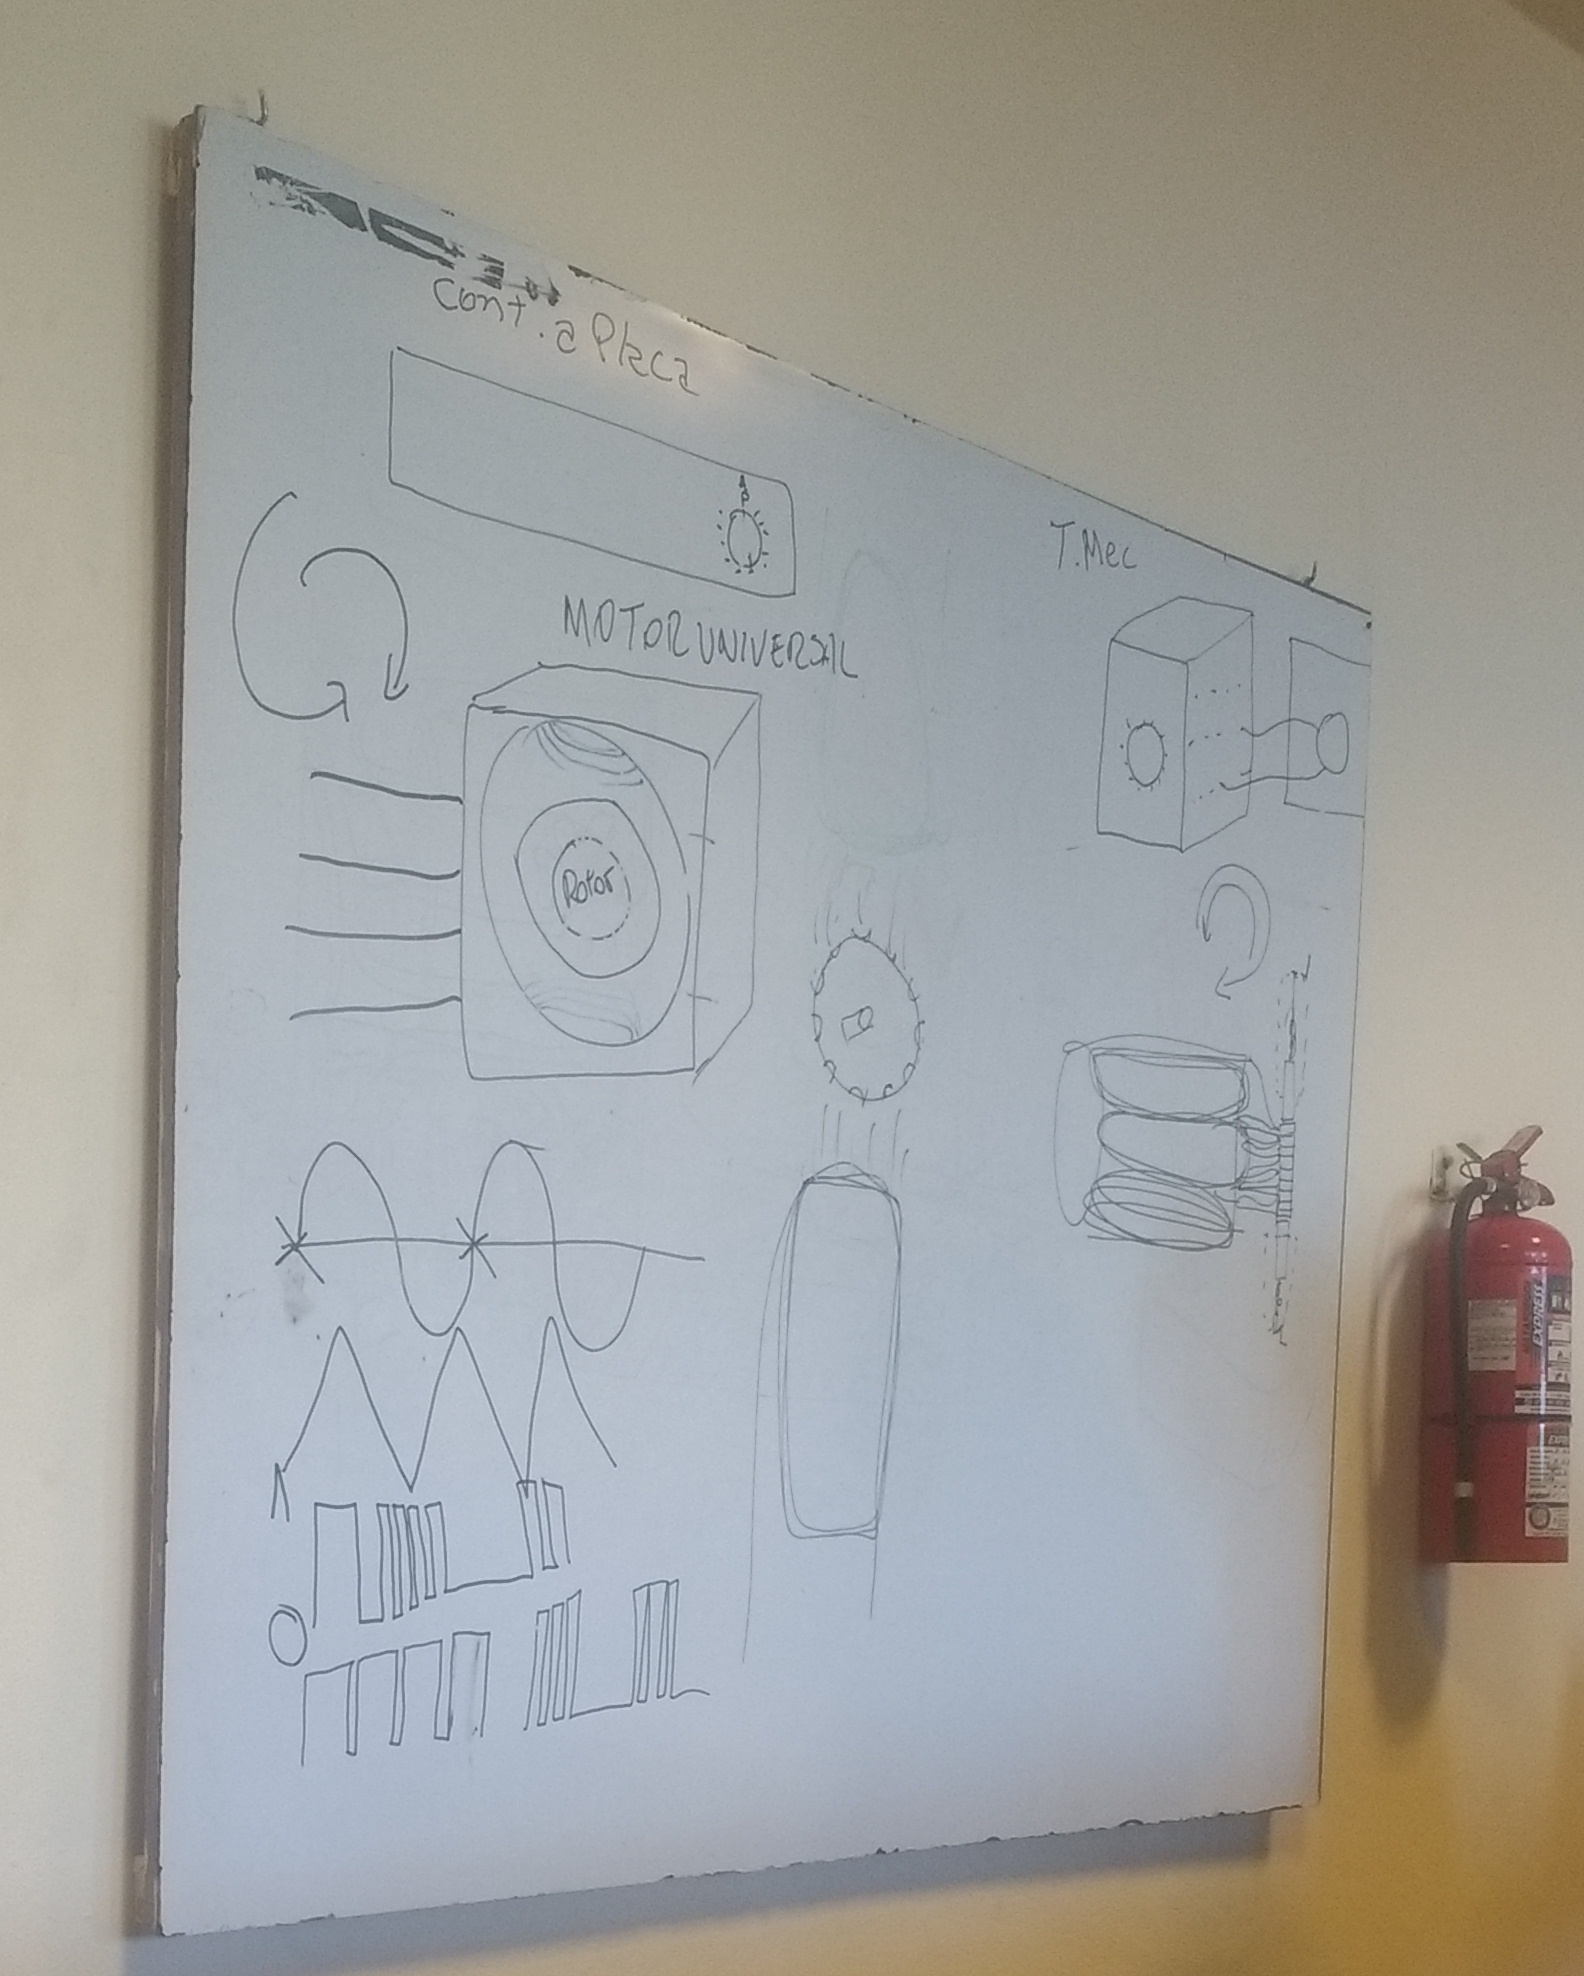 Cont. a Placa
T.Mec
MOTOR UNIVERSAL
Rotor
EXPRESS